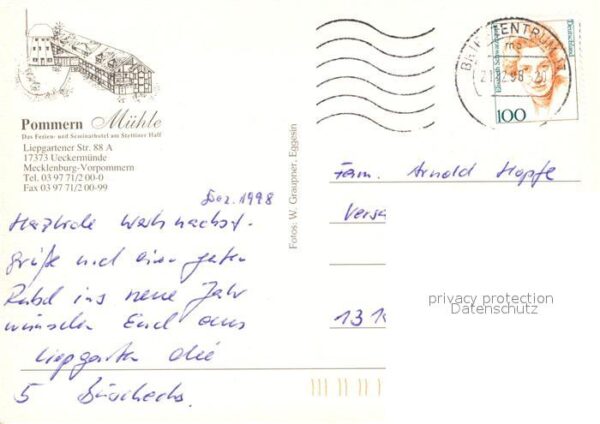 Pommern Mühle
Das Ferien- und Seminarhotel am Stettiner Haff
Liepgartener Str. 88 A
17373 Ueckermünde
Mecklenburg-Vorpommern
Tel. 03 97 71/2 00-0
Fax 03 97 71/2 00-99
Dez. 1998
Herzliche Weihnachts-
grüße und einen guten
Rutsch ins neue Jahr
wünschen Euch aus
Liepgarten die
5
Fotos: W. Graupner, Eggesin
BRIEFZENTRUM 17
ma
21.12.98-20
Deutschland
100
Fam. Arnold Hopfe
Versa
131
privacy protection
Datenschutz